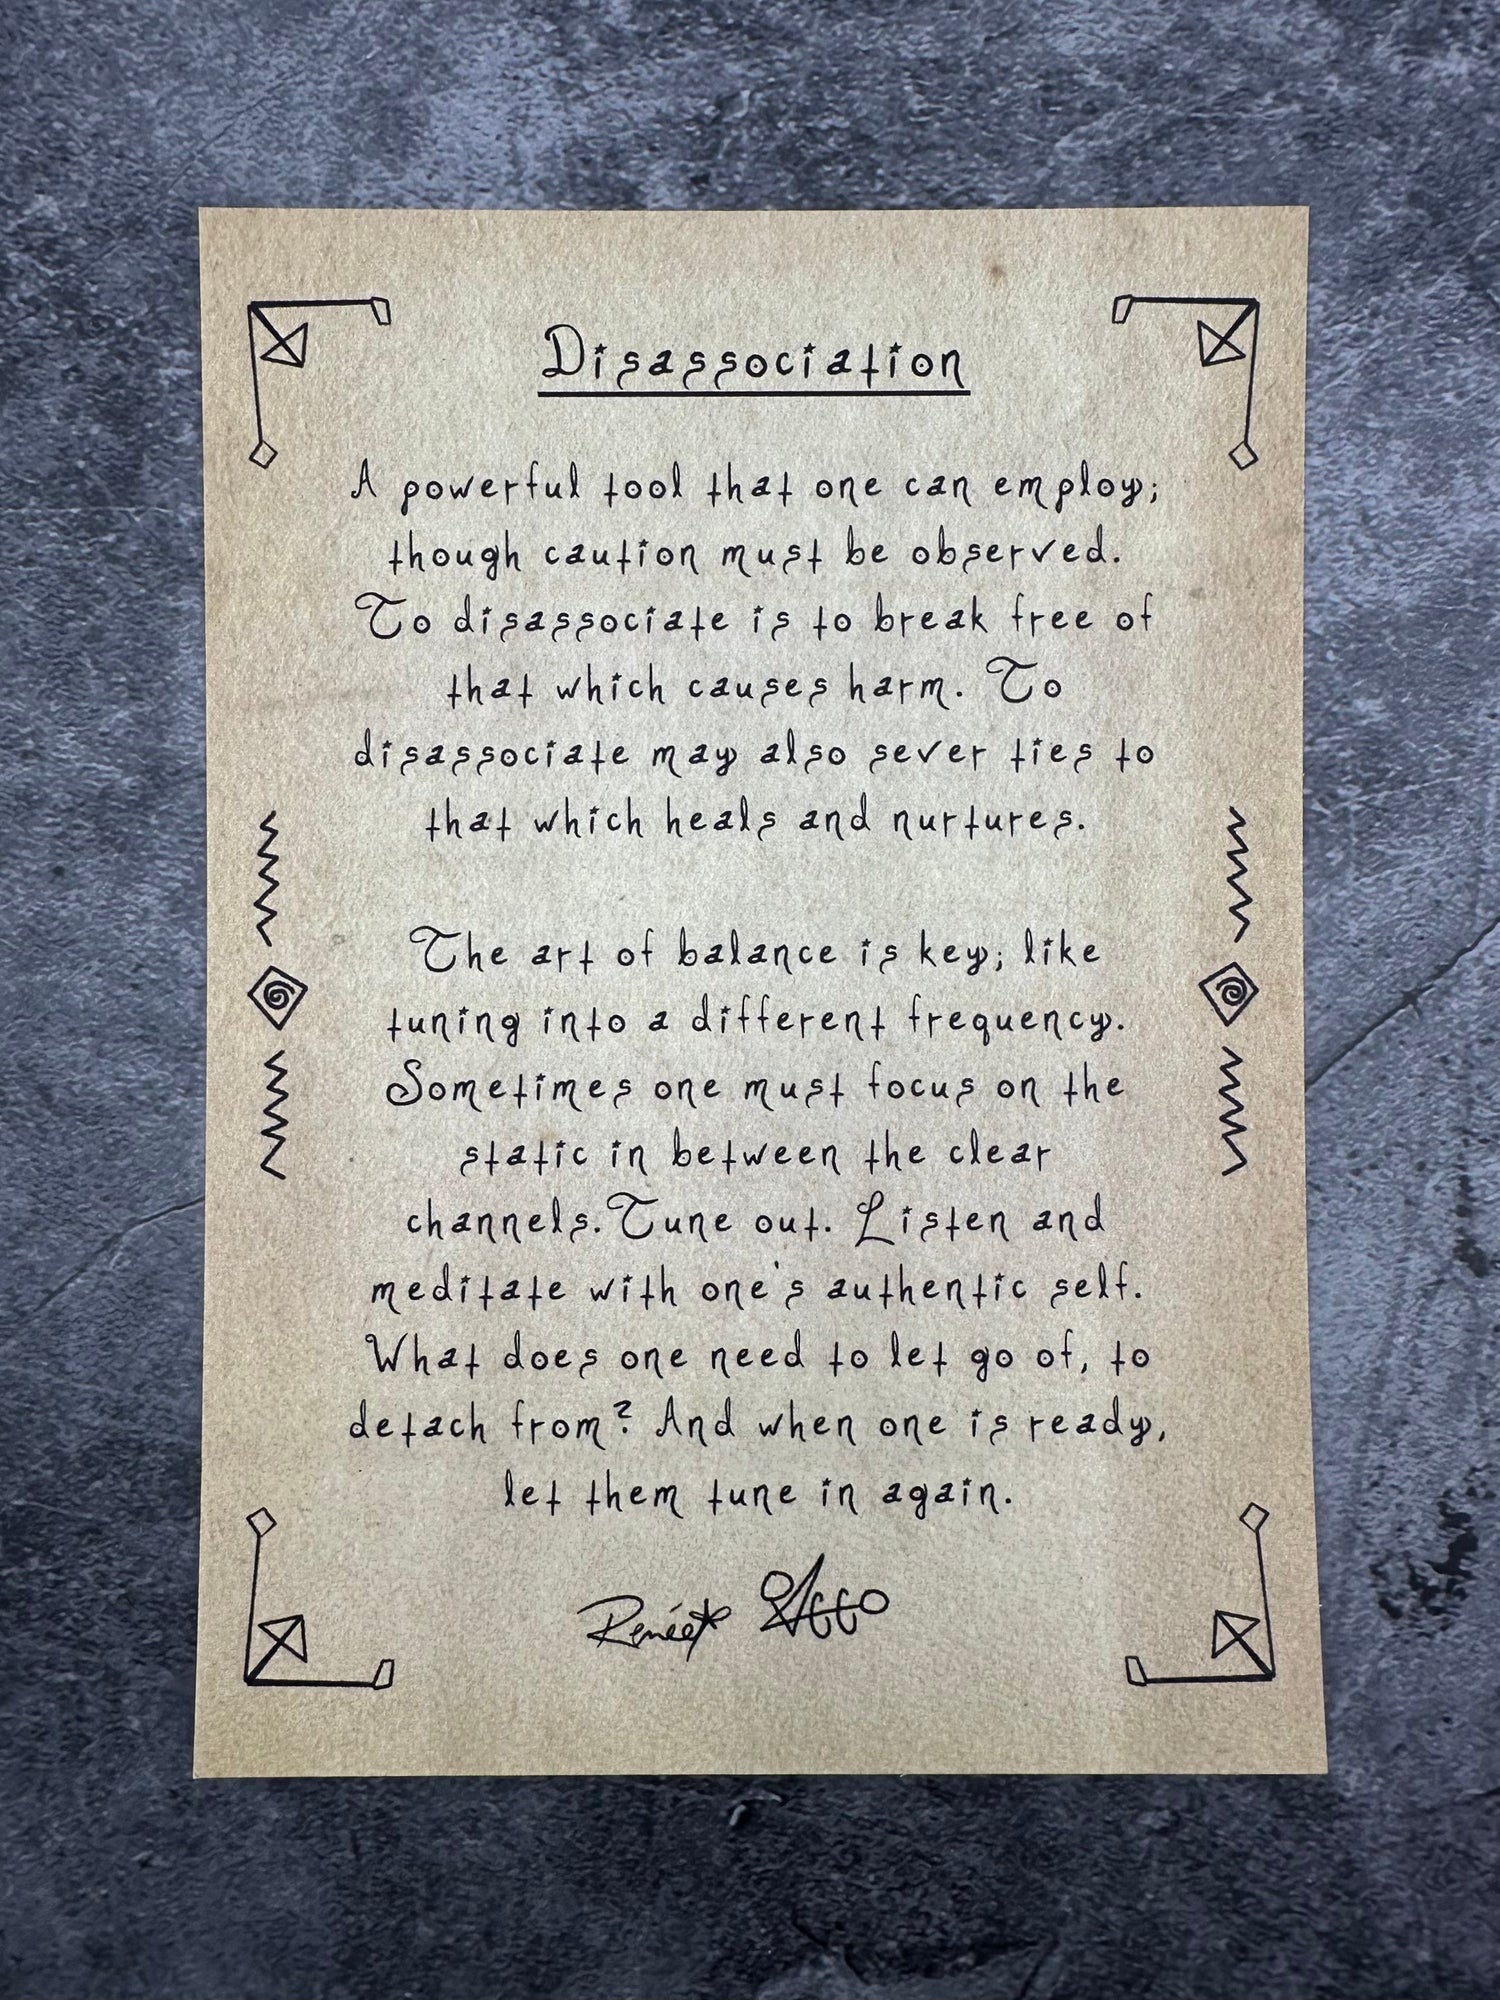 Disassociation
A powerful tool that one can employ;
though caution must be observed.
To disassociate is to break free of
that which causes harm. To
disassociate may also sever ties to
that which heals and nurtures.
The art of balance is key; like
tuning into a different frequency.
Sometimes one must focus on the
static in between the clear
channels. Tune out. Listen and
meditate with one's authentic self.
What does one need to let go of, to
detach from? And when one is ready,
let them tune in again.
Renée